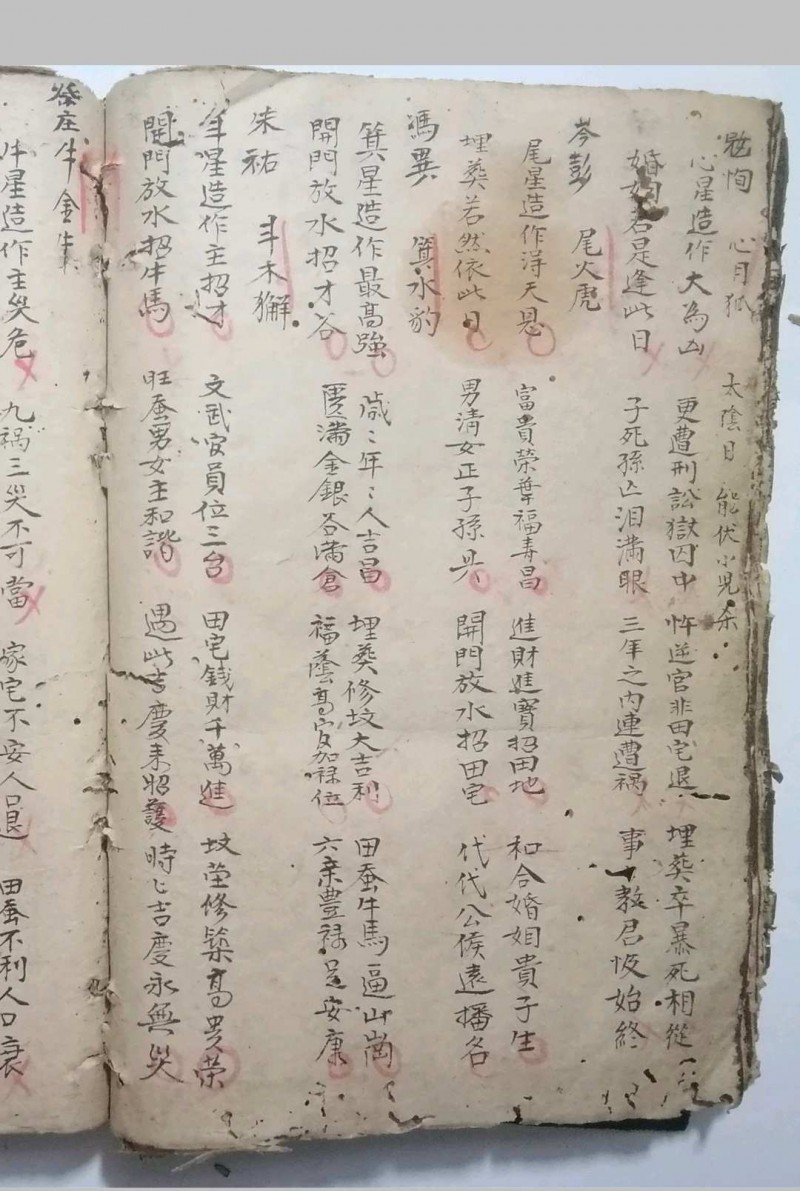 寇恂 心月狐 太陰日 能伏小児杀
心星造作大為凶 更遭刑訟獄囚中 忤逆官非田宅退 埋葬卒暴死相從
婚姻若是逢此日 子死孫亡泪滿眼 三年之內連遭禍 事教君 始終
岑彭 尾火虎
尾星造作淂天恩 富貴榮華福壽昌 進財進寶招田地 和合婚姻貴子生
埋葬若然依此日 男清女正子孫 開門放水招田宅 代代公候遠播名
馮異 箕水豹
箕星造作最高強 歲〻年〻人吉昌 埋葬修坟大吉利 田蚕牛馬逼山崗
開門放水招才谷 匿滿金銀谷滿倉 福蔭高官加禄位 六亲豊禄足安康
朱祐 斗木獬
斗星造作主招才 文武官員位三台 田宅錢財千萬進 坟茔修築高贵荣
開門放水招牛馬 旺蚕男女主和諧 遇此吉慶来照護 時〻吉慶永無災
祭庄 牛金牛
牛星造作主災危 九禍三災不可當 家宅不安人口退 田蚕不利人口衰